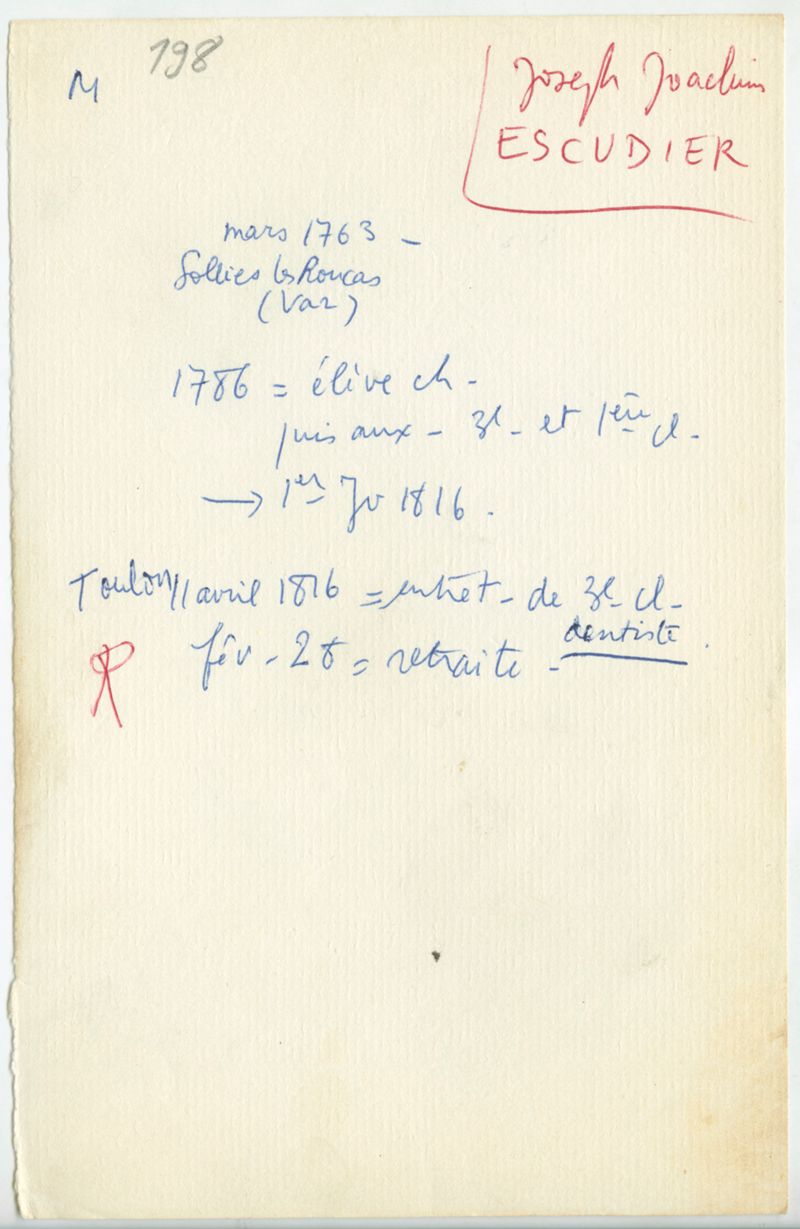 198
M
Joseph Joachim
ESCUDIER
mars 1763 -
Sollies les Roucas
(Var)
1786 = élève ch -
puis aux - 3e - et 1ère cl -
→ 1er Jv 1816 .
Toulon // avril 1816 = entret - de 3e cl -
dentiste .
fév - 28 = retraite -